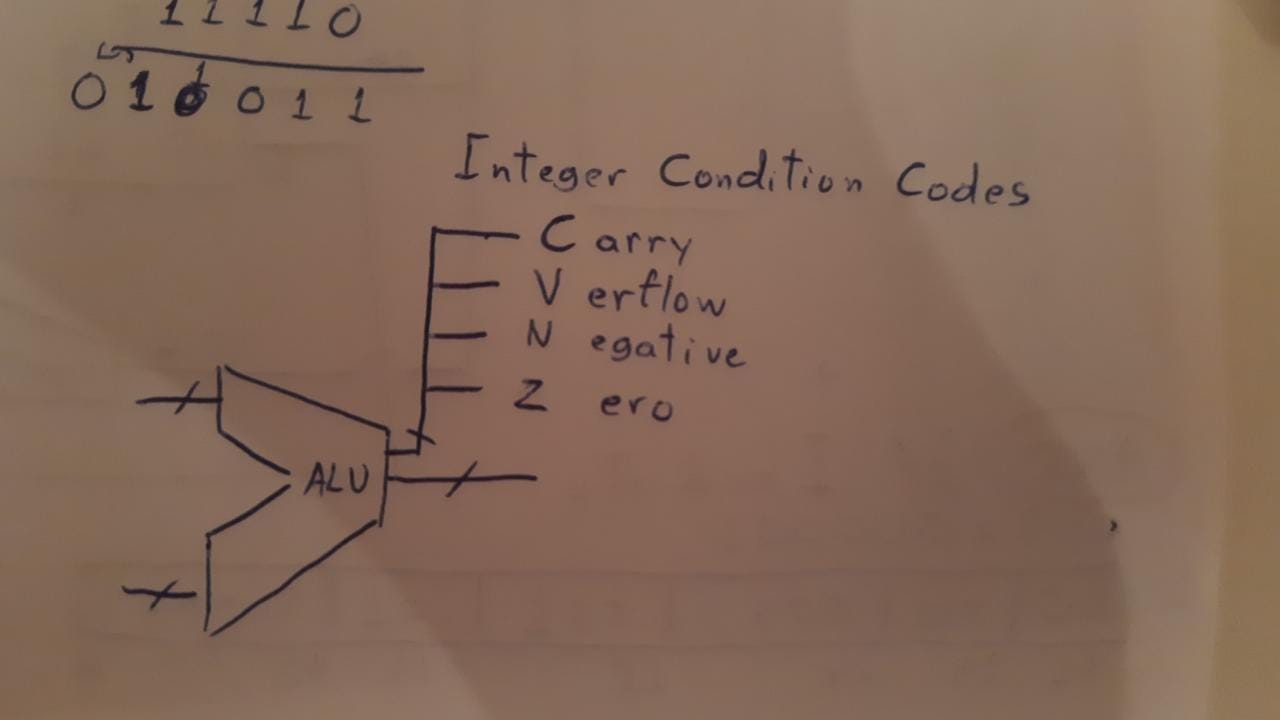 1 1 1 1 0
0 1 0 0 1 1
Integer Condition Codes
C arry
V erflow
N egative
Z ero
ALU